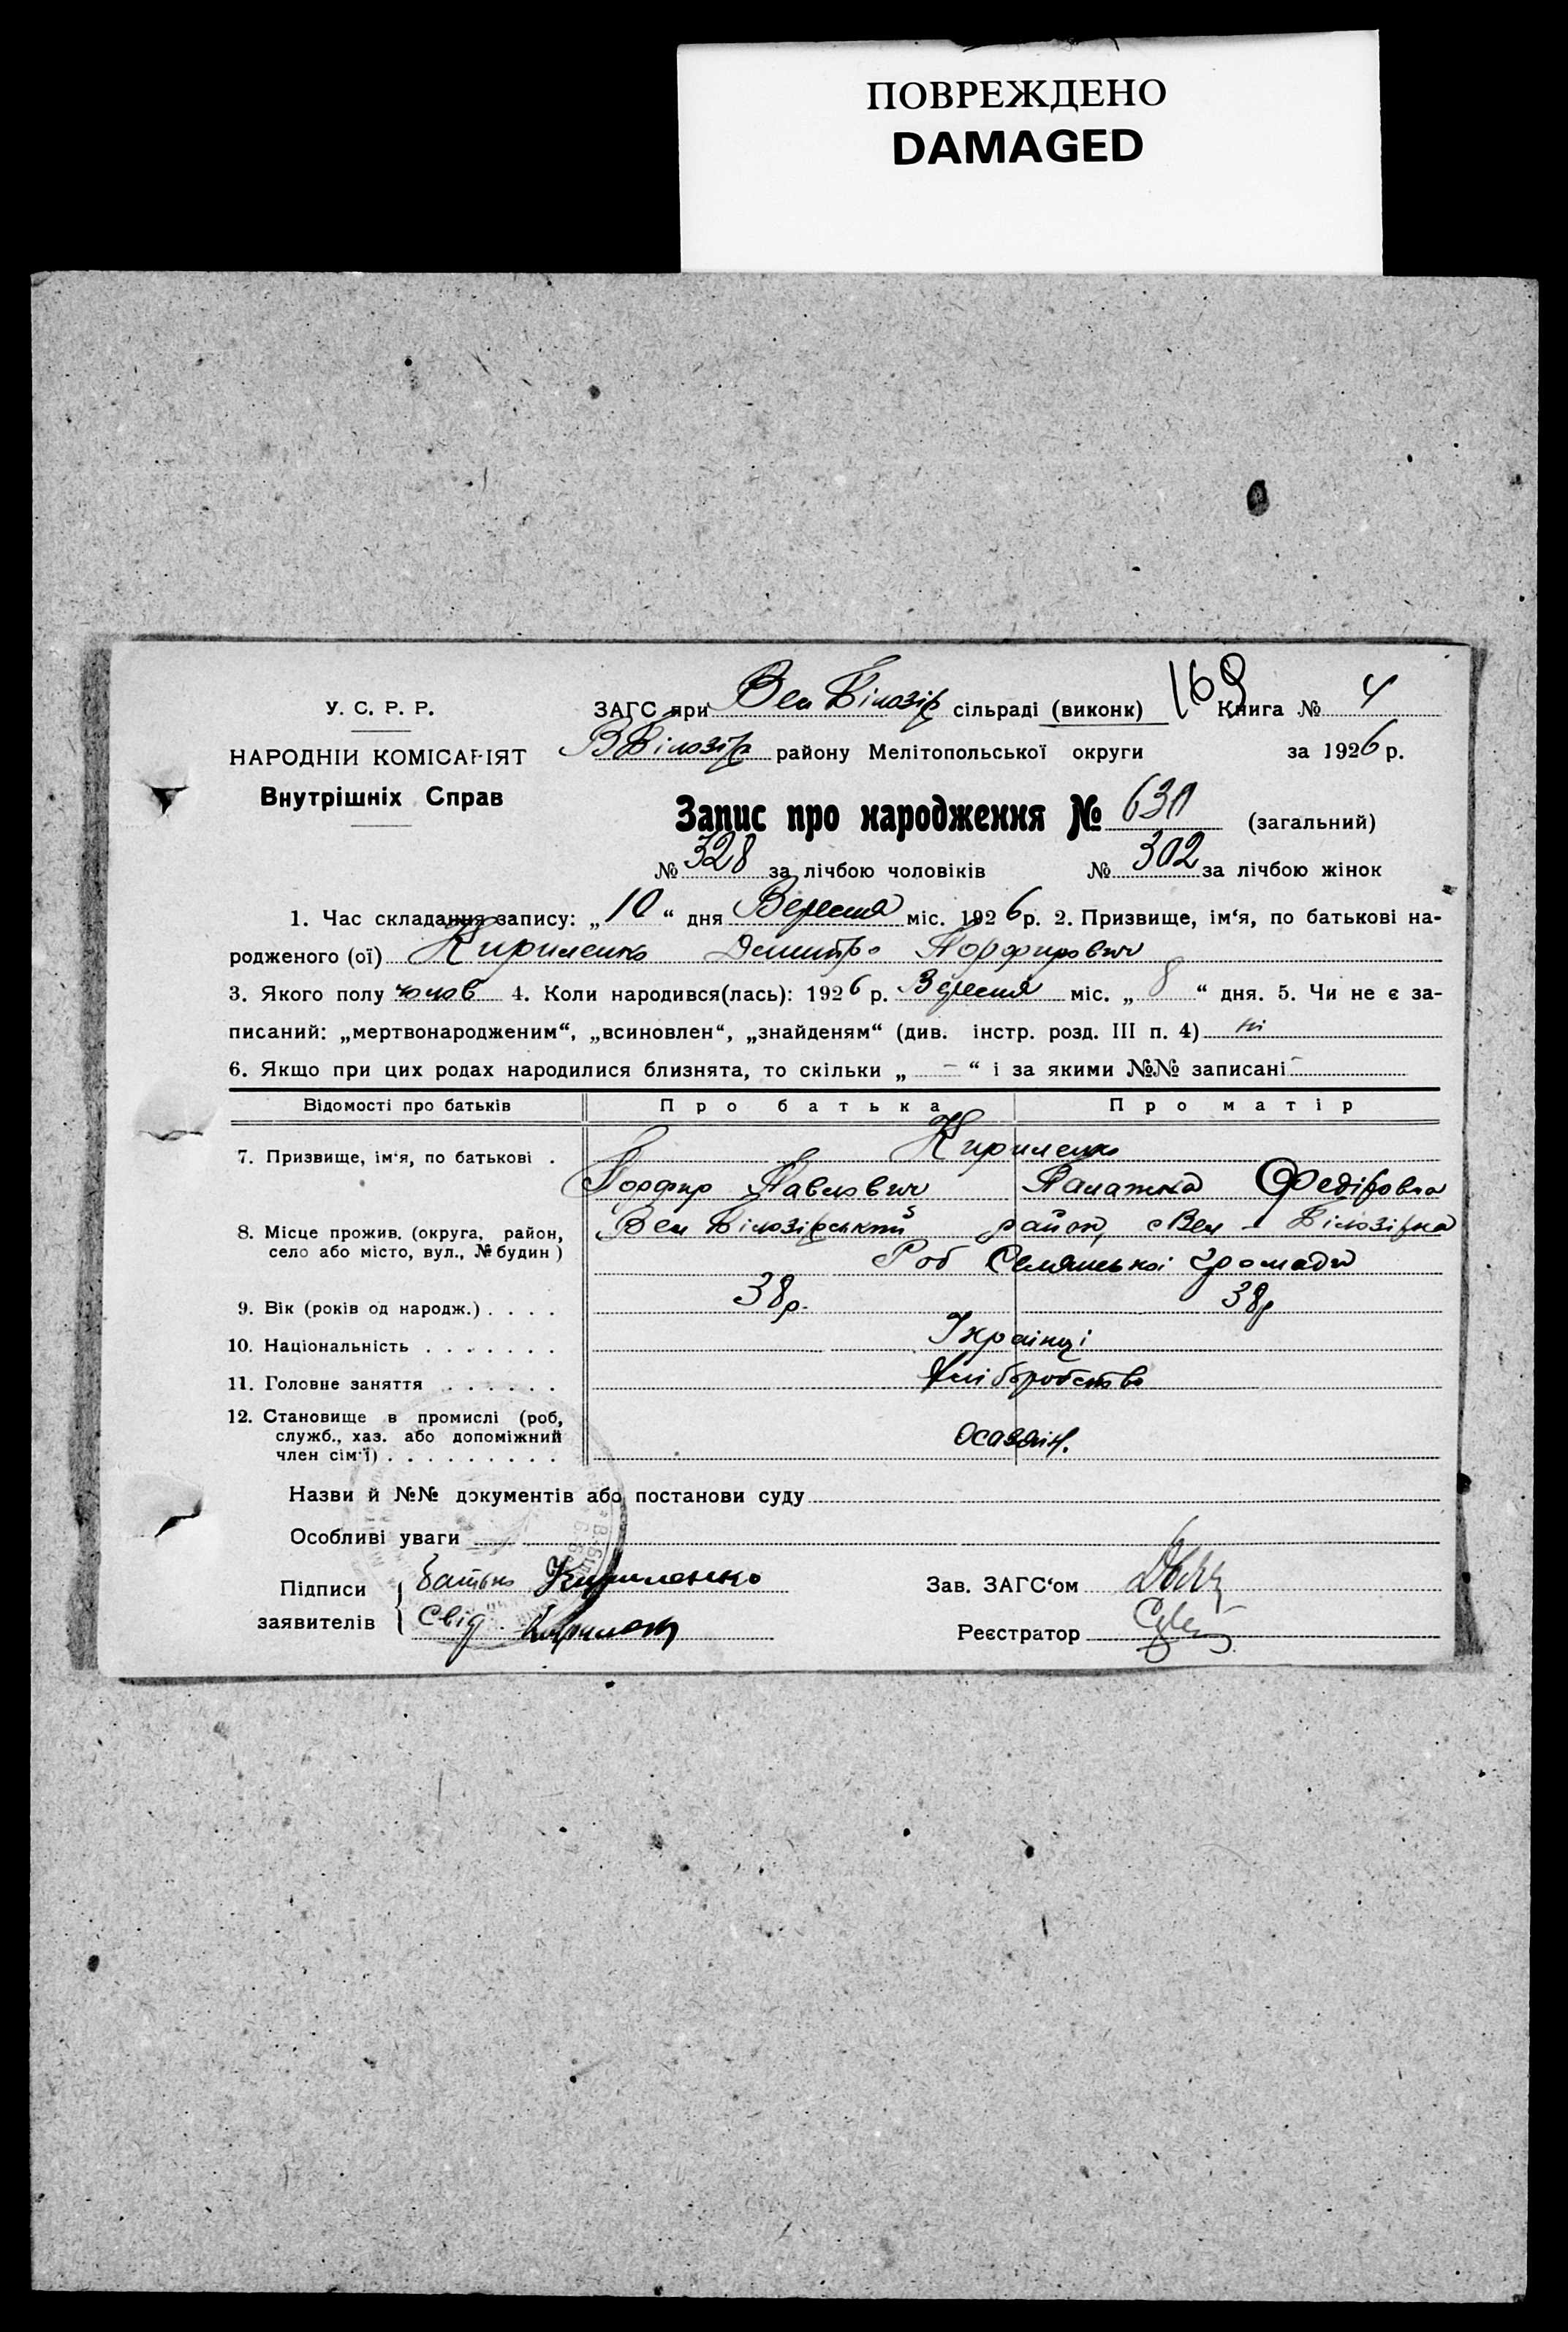 ПОВРЕЖДЕНО
DAMAGED
У. С. Р. Р.
НАРОДНІЙ КОМІСАРІЯТ
Внутрішніх Справ
ЗАГС при Вел Білозір сільраді (виконк) 169 Книга № 4
В Білозір району Мелітопольської округи за 1926 р.
Запис про народження № 630 (загальний)
№ 328 за лічбою чоловіків № 302 за лічбою жінок
1. Час складання запису: „10“ дня Вересня міс. 1926 р. 2. Призвище, ім‘я, по батькові на-
родженого (ої) Кириленко Демитро Порфирович
3. Якого полу чолов 4. Коли народився(лась): 1926 р. Вересня міс. „8“ дня. 5. Чи не є за-
писаний: „мертвонародженим“, „всиновлен“, „знайденям“ (див. інстр. розд. III п. 4) ні
6. Якщо при цих родах народилися близнята, то скільки „ – “ і за якими №№ записані –
Відомості про батьків Про батька Про матір
7. Призвище, ім‘я, по батькові . Кириленко
Порфир Павлович Палажка Федіровна
8. Місце прожив. (округа, район,
село або місто, вул., № будин)
Вел Білозірський район, с Вел - Білозірка
Род Селянської громади
9. Вік (років од народж.) . . . . 38р. 38р
10. Національність . . . . . . . Українці
11. Головне заняття . . . . . . Хліборобство
12. Становище в промислі (роб,
служб., хаз. або допоміжний
член сім‘ї) . . . . . . . . .
Назви й №№ документів або постанови суду
Особливі уваги
Підписи
заявителів
батько Кириленко
Свід. Кириленко
Зав. ЗАГС‘ом
Реєстратор